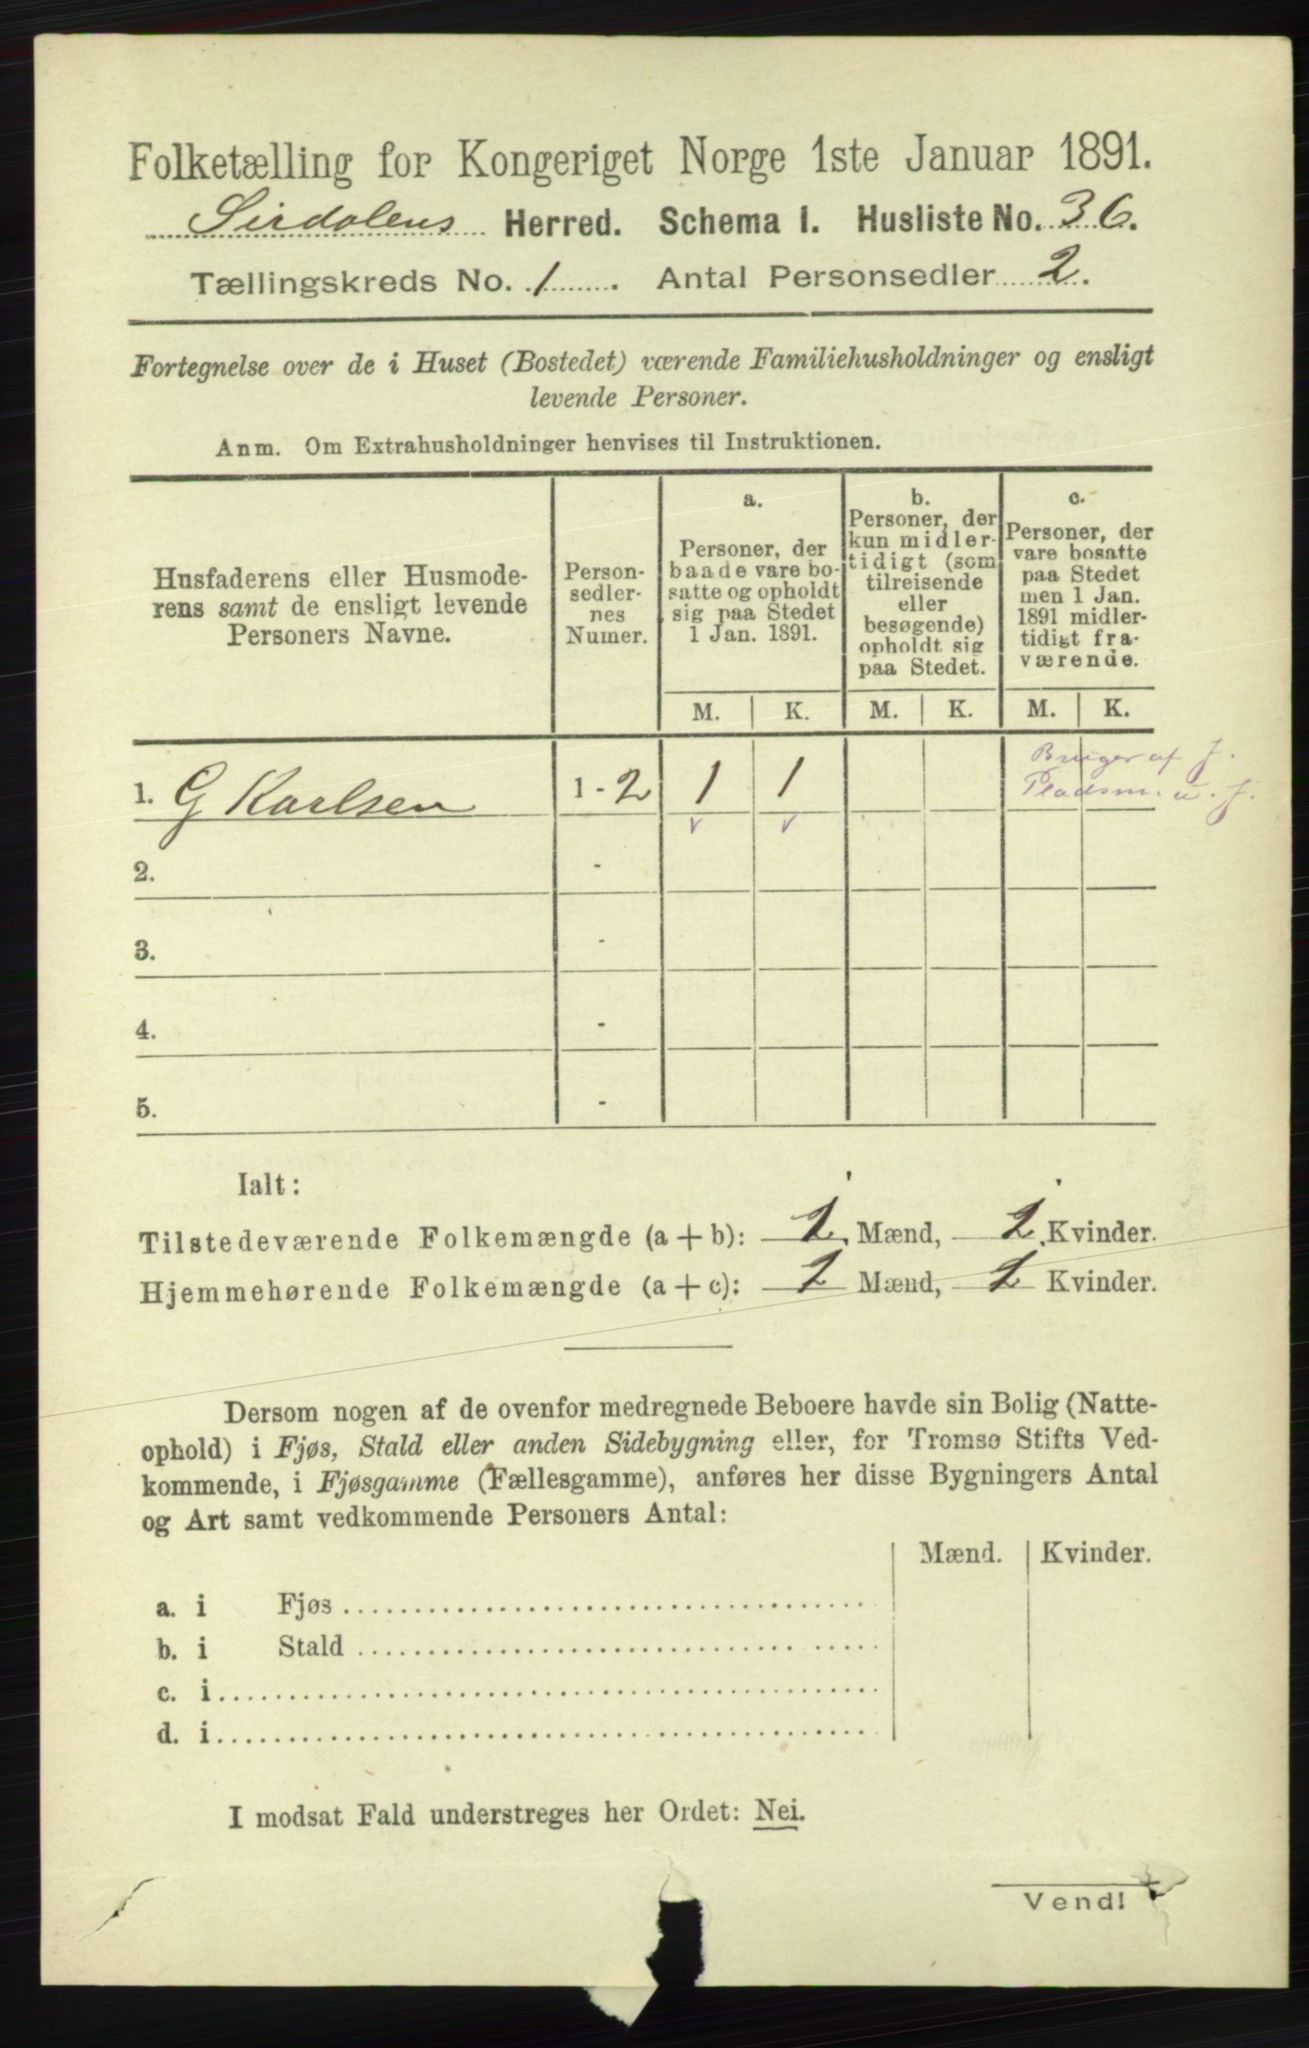 Folketælling for Kongeriget Norge 1ste Januar 1891.
Sirdalens Herred. Schema I. Husliste No. 36.
Tællingskreds No. 1. Antal Personsedler 2.
Fortegnelse over de i Huset (Bostedet) værende Familiehusholdninger og ensligt
levende Personer.
Anm. Om Extrahusholdninger henvises til Instruktionen.
Husfaderens eller Husmode-
rens samt de ensligt levende
Personers Navne.
Person-
sedler-
nes
Numer.
a.
Personer, der
baade vare bo-
satte og opholdt
sig paa Stedet
1 Jan. 1891.
b.
Personer, der
kun midler-
tidigt (som
tilreisende
eller
besøgende)
opholdt sig
paa Stedet.
c.
Personer, der
vare bosatte
paa Stedet
men 1 Jan.
1891 midler-
tidigt fra-
værende.
M. K. M. K. M. K.
Bruger af J.
1. G Karlsen 1 - 2 1 1 Pladsm. u. J.
2. -
3. -
4. -
5. -
Ialt:
Tilstedeværende Folkemængde (a + b): 1 Mænd, 1 Kvinder.
Hjemmehørende Folkemængde (a + c): 1 Mænd, 1 Kvinder.
Dersom nogen af de ovenfor medregnede Beboere havde sin Bolig (Natte-
ophold) i Fjøs, Stald eller anden Sidebygning eller, for Tromsø Stifts Ved-
kommende, i Fjøsgamme (Fællesgamme), anføres her disse Bygningers Antal
og Art samt vedkommende Personers Antal:
Mænd. Kvinder.
a. i Fjøs
b. i Stald
c. i
d. i
I modsat Fald understreges her Ordet: Nei.
Vend!